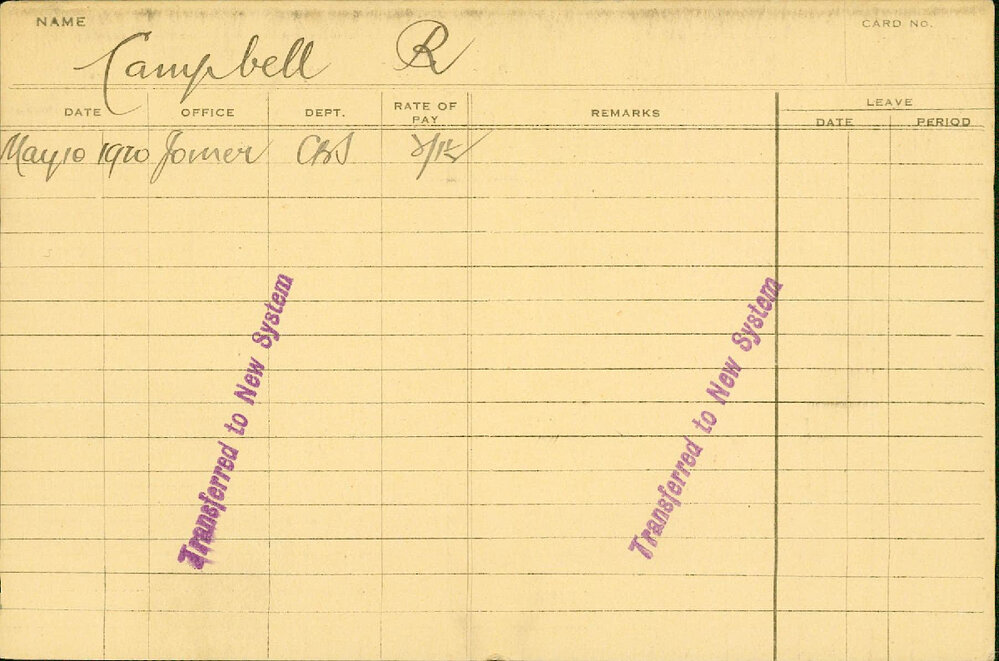 NAME
CARD No.
Campbell R
DATE OFFICE DEPT. RATE OF PAY REMARKS LEAVE
DATE PERIOD
May 10 1920 Joiner
Transferred to New System
Transferred to New System